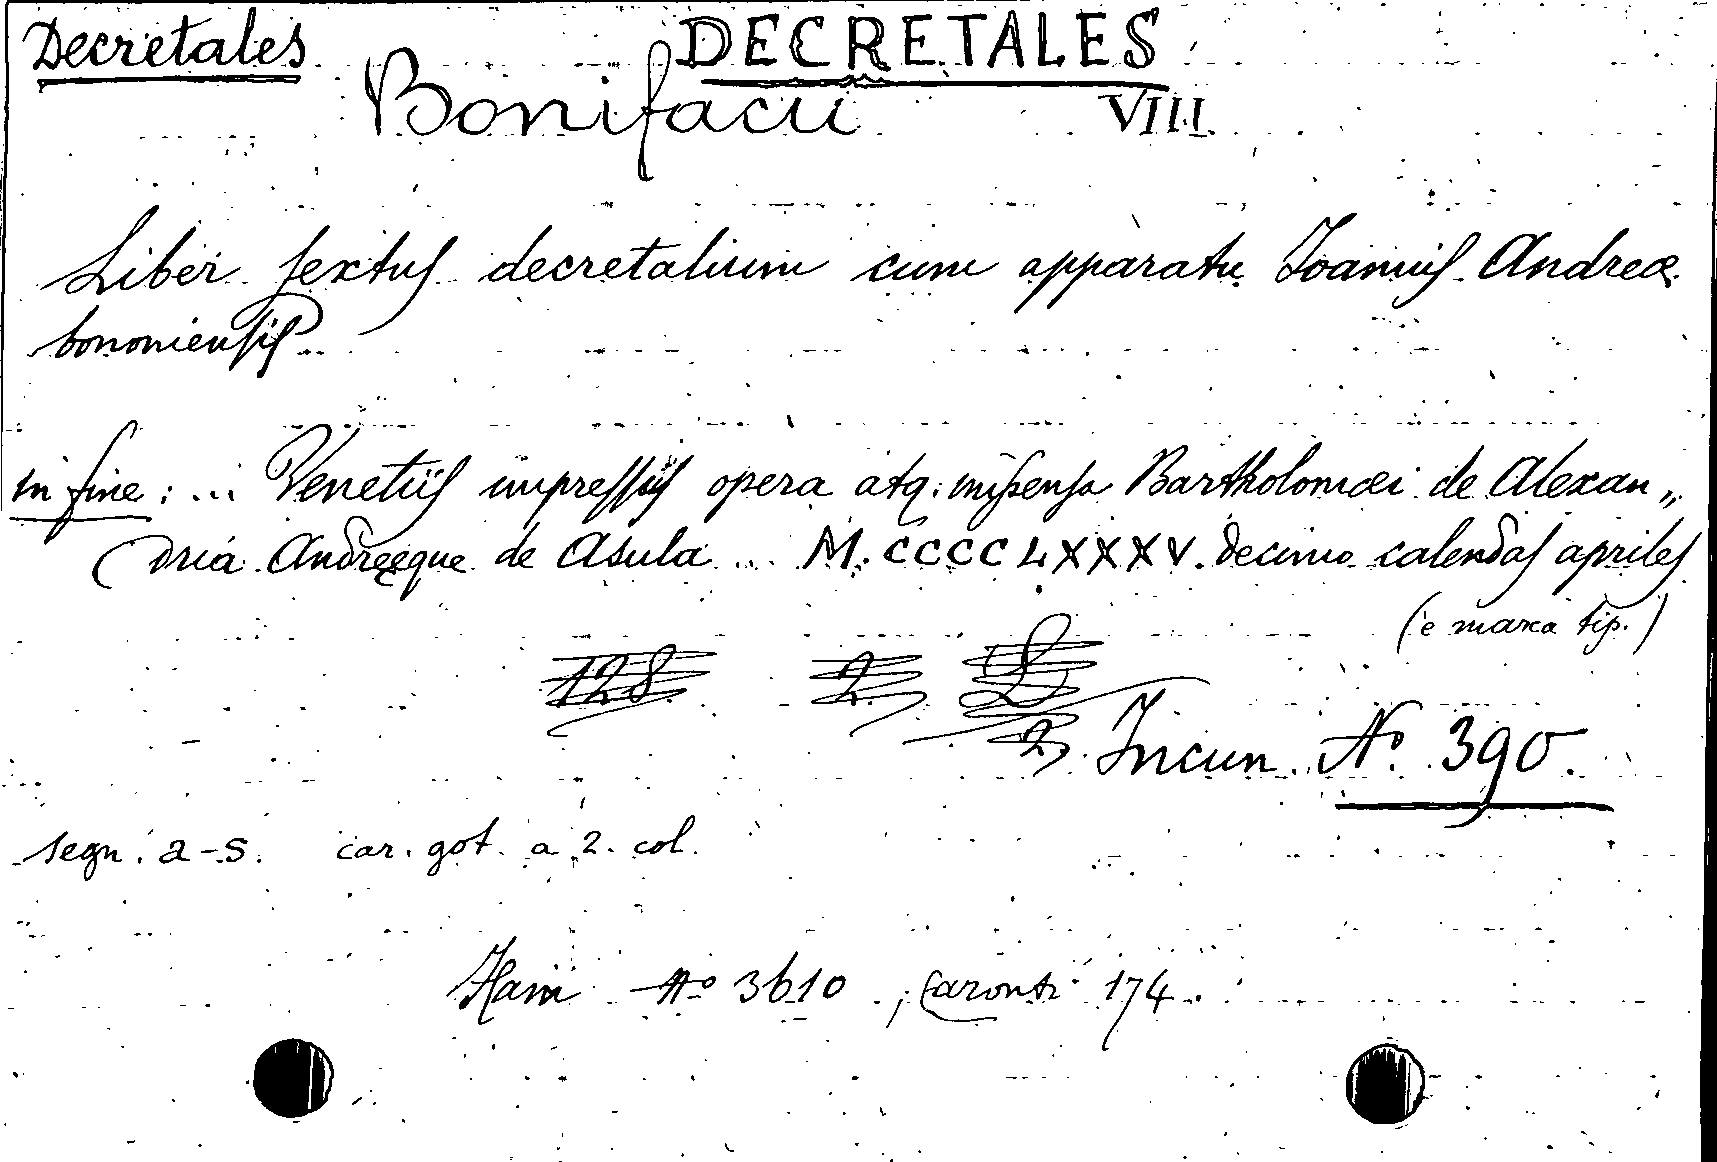 Decretales DECRETALES
Bonifacii VIII
Liber sextus decretalium cum apparatu Ioannis Andreæ
bononiensis
in fine: ... Venetiis impressus opera atq. impensa Bartholomæi de Alexan„
dria Andreęque de Asula ... M.CCCCLXXXV. decimo calendas apriles
(e marca tip.)
128 2
2 Incun. Nº 390
segn. a-s. car. got. a 2. col.
Hain Nº 3610, Caronti 174.